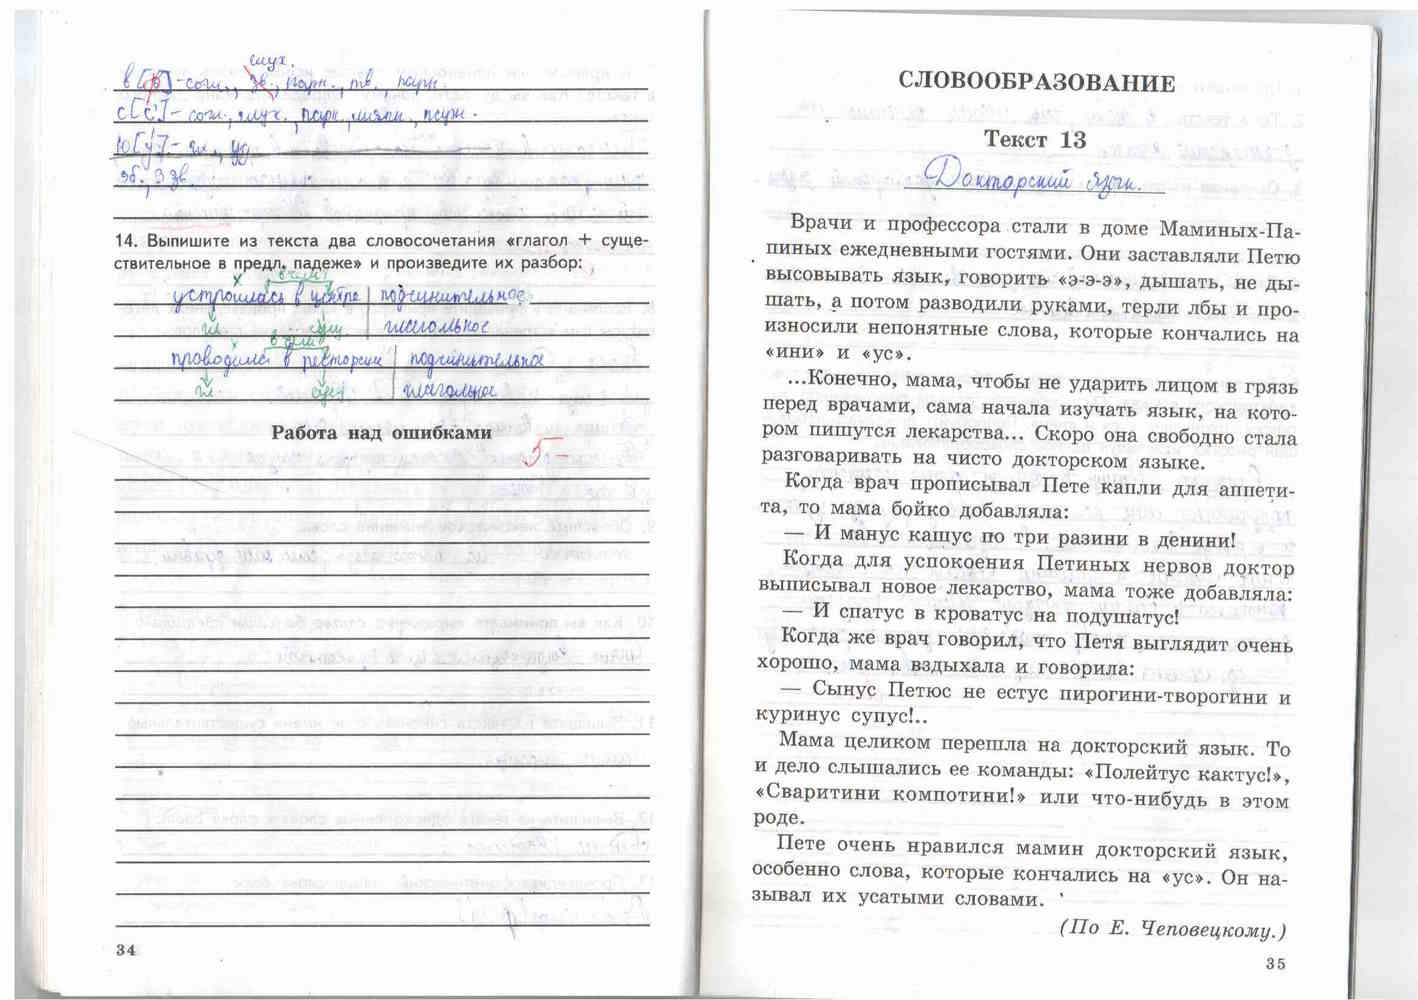 глух.
в [ф] - согл., зв., парн., тв., парн.
с [с'] - согл., глух., парн., мягк., парн.
ю [у] - гл., уд.
3 б., 3 зв.
14. Выпишите из текста два словосочетания «глагол + суще-
ствительное в предл. падеже» и произведите их разбор:
х в чём?
устроилась в центре | подчинительное
гл. сущ. | глагольное
х в чём?
проводился в ректории | подчинительное
гл. сущ. | глагольное
Работа над ошибками
5-
34
СЛОВООБРАЗОВАНИЕ
Текст 13
Докторский язык.
Врачи и профессора стали в доме Маминых-Па-
пиных ежедневными гостями. Они заставляли Петю
высовывать язык, говорить «э-э-э», дышать, не ды-
шать, а потом разводили руками, терли лбы и про-
износили непонятные слова, которые кончались на
«ини» и «ус».
...Конечно, мама, чтобы не ударить лицом в грязь
перед врачами, сама начала изучать язык, на кото-
ром пишутся лекарства... Скоро она свободно стала
разговаривать на чисто докторском языке.
Когда врач прописывал Пете капли для аппети-
та, то мама бойко добавляла:
— И манус кашус по три разини в денини!
Когда для успокоения Петиных нервов доктор
выписывал новое лекарство, мама тоже добавляла:
— И спатус в кроватус на подушатус!
Когда же врач говорил, что Петя выглядит очень
хорошо, мама вздыхала и говорила:
— Сынус Петюс не естус пирогини-творогини и
куринус супус!..
Мама целиком перешла на докторский язык. То
и дело слышались ее команды: «Полейтус кактус!»,
«Сваритини компотини!» или что-нибудь в этом
роде.
Пете очень нравился мамин докторский язык,
особенно слова, которые кончались на «ус». Он на-
зывал их усатыми словами.
(По Е. Чеповецкому.)
35